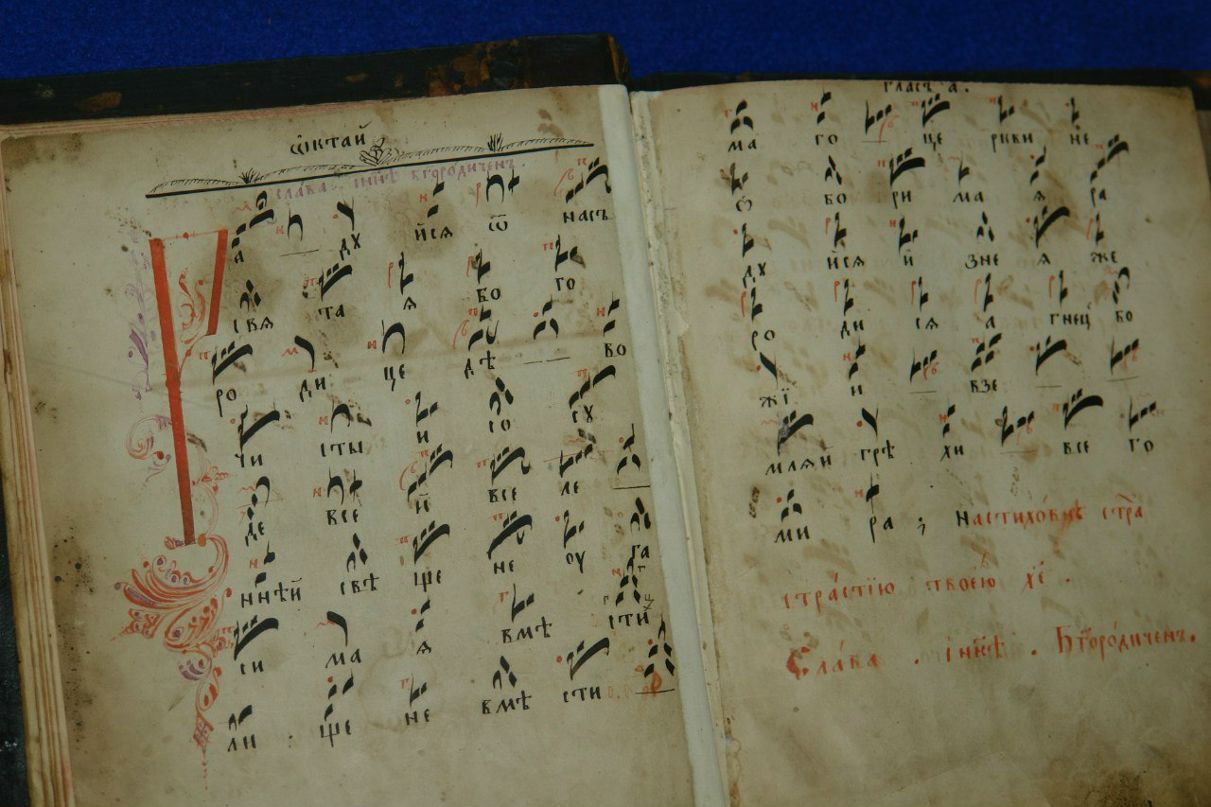 ѡ҆ктай
слава инн҃ѣ бг҃ородиченъ.
Ра ду йсѧ ѿ насъ
свѧ та ѧ бо го
ро ди це дѣ во
чи сты и со су
де все й все ле
ннѣй свѣ ще не оу га
си ма ѧ вмѣ сти
ли ще не вмѣ сти
гласъ а҃.
ма го це ркви не
ѡ бо ри ма ѧ ра
ду йсѧ и зне ѧ же
ро ди сѧ а гнец бо
жї и взе
млѧи грѣ хи все го
ми ра ; Настихо́внѣ стра
стра́стїю твоею хе҃ .
Сла́ва . і инн҃ѣ . Бг҃оро́диченъ.